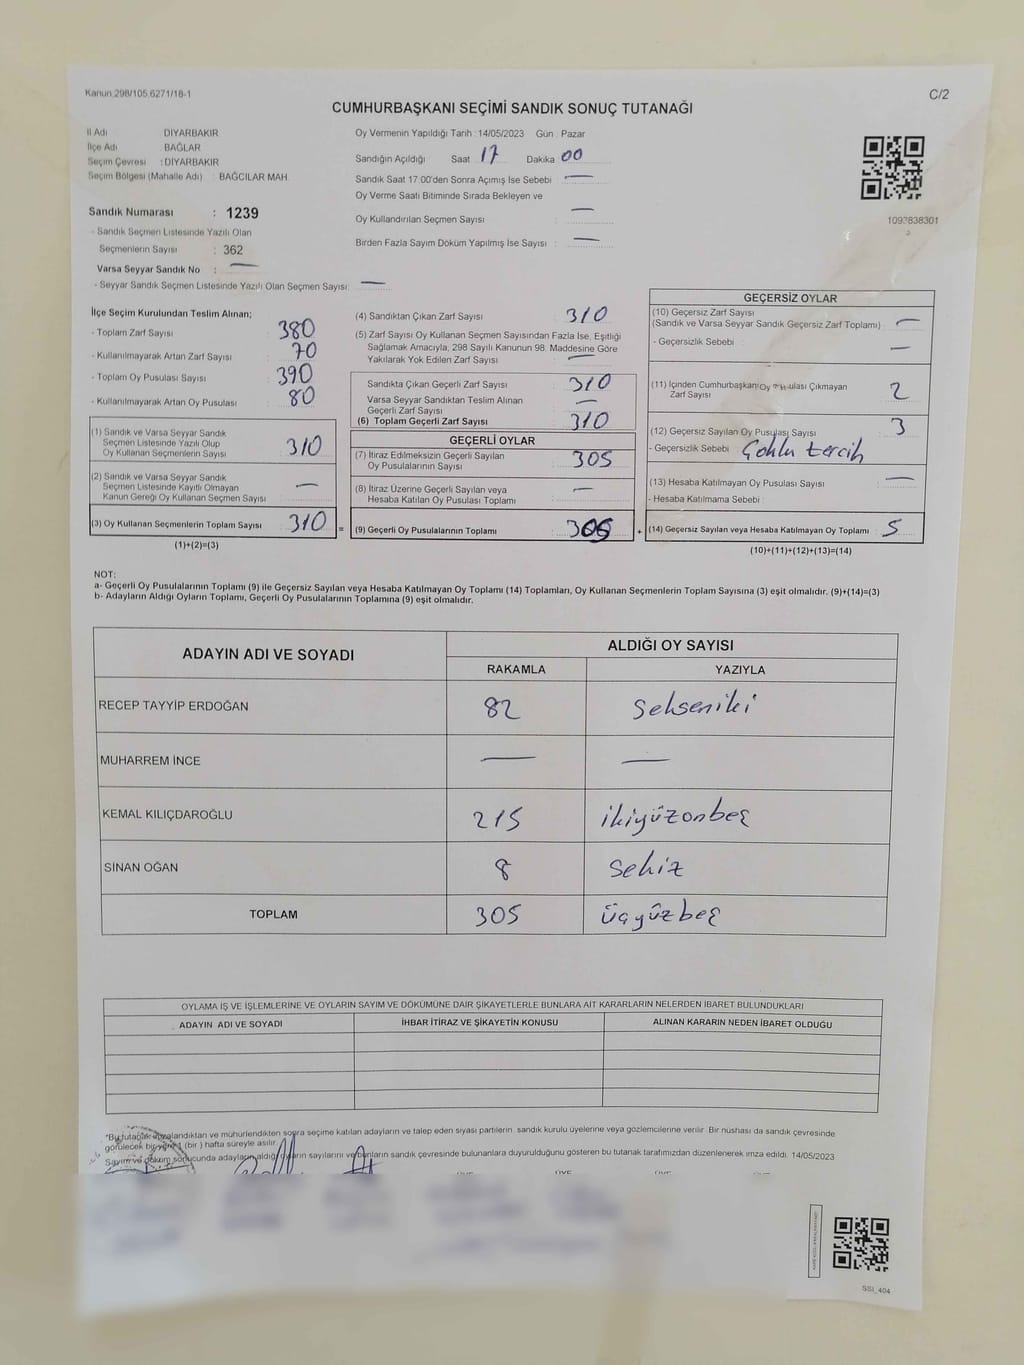 Kanun 298/105,6271/18-1
C/2
CUMHURBAŞKANI SEÇİMİ SANDIK SONUÇ TUTANAĞI
İl Adı DİYARBAKIR
İlçe Adı BAĞLAR
Seçim Çevresi : DİYARBAKIR
Seçim Bölgesi (Mahalle Adı) : BAĞCILAR MAH.
Sandık Numarası : 1239
- Sandık Seçmen Listesinde Yazılı Olan
Seçmenlerin Sayısı : 362
Varsa Seyyar Sandık No : —
- Seyyar Sandık Seçmen Listesinde Yazılı Olan Seçmen Sayısı: —
Oy Vermenin Yapıldığı Tarih : 14/05/2023 Gün : Pazar
Sandığın Açıldığı Saat 17 Dakika 00
Sandık Saat 17:00'den Sonra Açımış İse Sebebi : —
Oy Verme Saati Bitiminde Sırada Bekleyen ve
Oy Kullandırılan Seçmen Sayısı : —
Birden Fazla Sayım Döküm Yapılmış İse Sayısı : —
1092838301
İlçe Seçim Kurulundan Teslim Alınan;
- Toplam Zarf Sayısı 380
- Kullanılmayarak Artan Zarf Sayısı 70
- Toplam Oy Pusulası Sayısı 390
- Kullanılmayarak Artan Oy Pusulası 80
(1) Sandık ve Varsa Seyyar Sandık
Seçmen Listesinde Yazılı Olup
Oy Kullanan Seçmenlerin Sayısı 310
(2) Sandık ve Varsa Seyyar Sandık
Seçmen Listesinde Kayıtlı Olmayan
Kanun Gereği Oy Kullanan Seçmen Sayısı —
(3) Oy Kullanan Seçmenlerin Toplam Sayısı 310
(1)+(2)=(3)
(4) Sandıktan Çıkan Zarf Sayısı : 310
(5) Zarf Sayısı Oy Kullanan Seçmen Sayısından Fazla İse, Eşitliği
Sağlamak Amacıyla, 298 Sayılı Kanunun 98. Maddesine Göre
Yakılarak Yok Edilen Zarf Sayısı : —
Sandıkta Çıkan Geçerli Zarf Sayısı : 310
Varsa Seyyar Sandıktan Teslim Alınan
Geçerli Zarf Sayısı : —
(6) Toplam Geçerli Zarf Sayısı : 310
GEÇERLİ OYLAR
(7) İtiraz Edilmeksizin Geçerli Sayılan
Oy Pusulalarının Sayısı : 305
(8) İtiraz Üzerine Geçerli Sayılan veya
Hesaba Katılan Oy Pusulası Toplamı : —
= (9) Geçerli Oy Pusulalarının Toplamı : 305
GEÇERSİZ OYLAR
(10) Geçersiz Zarf Sayısı
(Sandık ve Varsa Seyyar Sandık Geçersiz Zarf Toplamı) : —
- Geçersizlik Sebebi : —
(11) İçinden Cumhurbaşkanı Oy Pusulası Çıkmayan
Zarf Sayısı 2
(12) Geçersiz Sayılan Oy Pusulası Sayısı : 3
- Geçersizlik Sebebi Çoklu tercih
(13) Hesaba Katılmayan Oy Pusulası Sayısı : —
- Hesaba Katılmama Sebebi :
+ (14) Geçersiz Sayılan veya Hesaba Katılmayan Oy Toplamı : 5
(10)+(11)+(12)+(13)=(14)
NOT:
a- Geçerli Oy Pusulalarının Toplamı (9) ile Geçersiz Sayılan veya Hesaba Katılmayan Oy Toplamı (14) Toplamları, Oy Kullanan Seçmenlerin Toplam Sayısına (3) eşit olmalıdır. (9)+(14)=(3)
b- Adayların Aldığı Oyların Toplamı, Geçerli Oy Pusulalarının Toplamına (9) eşit olmalıdır.
ADAYIN ADI VE SOYADI ALDIĞI OY SAYISI
RAKAMLA YAZIYLA
RECEP TAYYİP ERDOĞAN 82 Sekseniki
MUHARREM İNCE — —
KEMAL KILIÇDAROĞLU 215 ikiyüzonbeş
SİNAN OĞAN 8 Sekiz
TOPLAM 305 üçyüzbeş
OYLAMA İŞ VE İŞLEMLERİNE VE OYLARIN SAYIM VE DÖKÜMÜNE DAİR ŞİKAYETLERLE BUNLARA AİT KARARLARIN NELERDEN İBARET BULUNDUKLARI
ADAYIN ADI VE SOYADI İHBAR İTİRAZ VE ŞİKAYETİN KONUSU ALINAN KARARIN NEDEN İBARET OLDUĞU
"Bu tutanak imzalandıktan ve mühürlendikten sonra seçime katılan adayların ve talep eden siyasi partilerin, sandık kurulu üyelerine veya gözlemcilerine verilir. Bir nüshası da sandık çevresinde
görülecek bir yere 1 (bir ) hafta süreyle asılır.
Sayım ve döküm sonucunda adayların aldığı oyların sayılarını ve bunların sandık çevresinde bulunanlara duyurulduğunu gösteren bu tutanak tarafımızdan düzenlenerek imza edildi. 14/05/2023
SSI_404